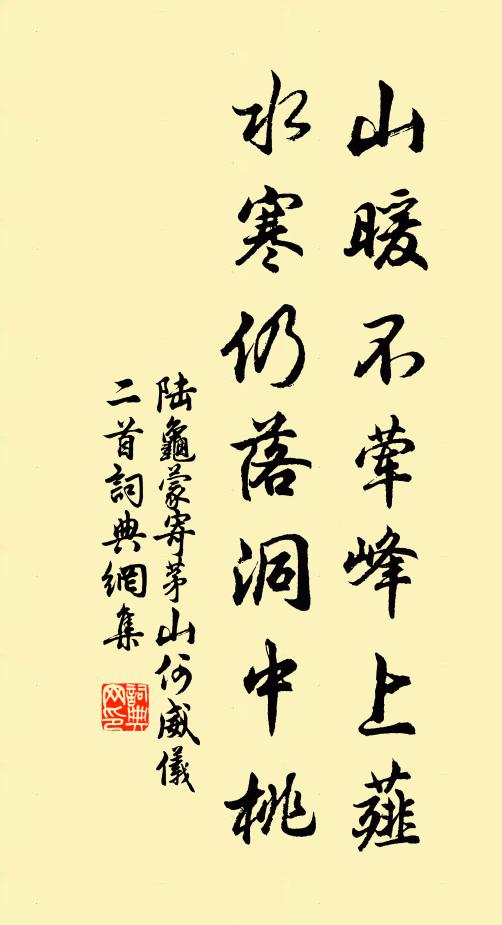 山暖不荤峰上薤
水寒仍落洞中桃
陆龜蒙寄茅山何威儀
二首詞典網集
詞典
网印